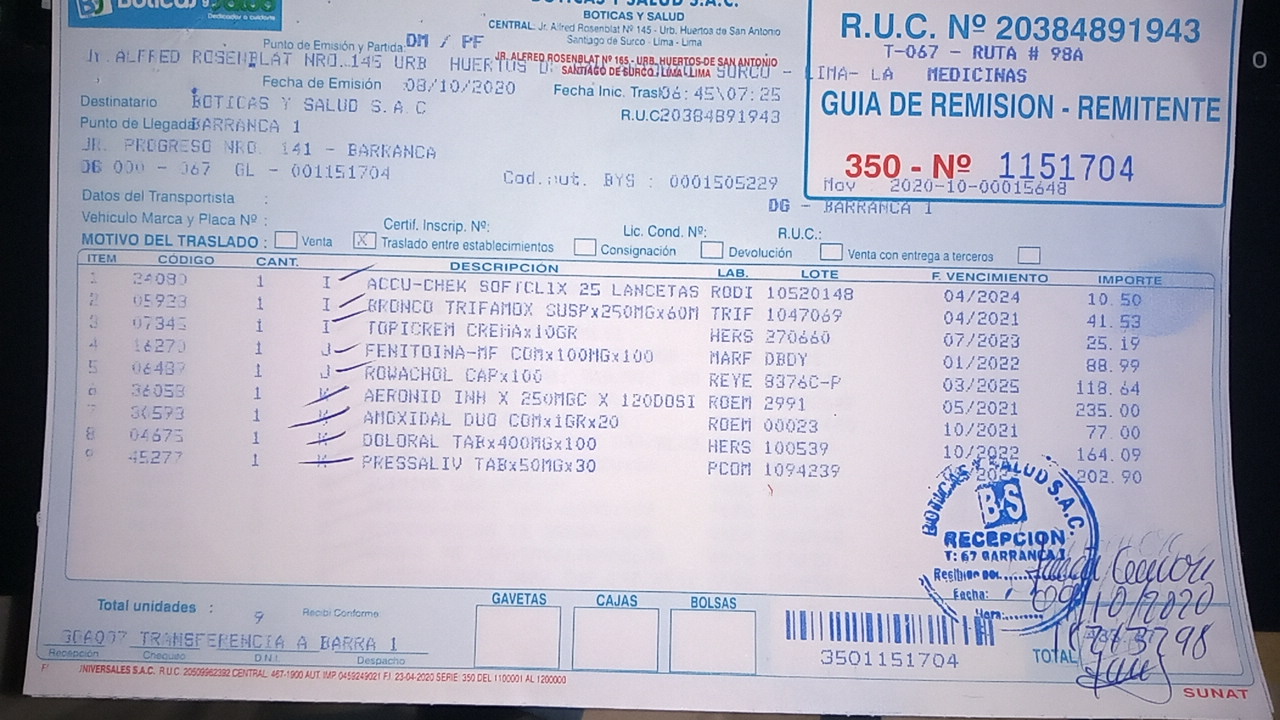 Boticas y Salud
Dedicados a cuidarte
BOTICAS Y SALUD S.A.C.
BOTICAS Y SALUD
CENTRAL: Jr. Alfred Rosenblat Nº 145 - Urb. Huertos de San Antonio
Santiago de Surco - Lima - Lima
R.U.C. Nº 20384891943
T-067 - RUTA # 98A
MEDICINAS
GUIA DE REMISION - REMITENTE
350 - Nº 1151704
May 2020-10-00015648
DG - BARRANCA 1
Punto de Emisión y Partida: DM / PF
Jr. ALFRED ROSENBLAT NRO. 145 URB HUERTOS D SURCO - LIMA- LA
JR. ALFRED ROSENBLAT Nº 165 - URB. HUERTOS DE SAN ANTONIO
SANTIAGO DE SURCO - LIMA - LIMA
Fecha de Emisión : 08/10/2020 Fecha Inic. Trasl 06:45\07:25
Destinatario BOTICAS Y SALUD S.A.C R.U.C 20384891943
Punto de Llegada BARRANCA 1
JR. PROGRESO NRO. 141 - BARRANCA
DG 000 - 067 GL - 001151704 Cod.aut. BYS : 0001505229
Datos del Transportista :
Vehículo Marca y Placa Nº : Certif. Inscrip. Nº: Lic. Cond. Nº: R.U.C.:
MOTIVO DEL TRASLADO : Venta X Traslado entre establecimientos Consignación Devolución Venta con entrega a terceros
ITEM CÓDIGO CANT. DESCRIPCIÓN LAB. LOTE F. VENCIMIENTO IMPORTE
1 24080 1 I ACCU-CHEK SOFTCLIX 25 LANCETAS RODI 10520148 04/2024 10.50
2 05923 1 I BRONCO TRIFAMOX SUSPx250MGx60M TRIF 1047069 04/2021 41.53
3 07345 1 I TOPICREM CREMAx10GR HERS 270660 07/2023 25.19
4 16270 1 J FENITOINA-MF COMx100MGx100 MARF DBDY 01/2022 88.99
5 06487 1 J ROWACHOL CAPx100 REYE 8376C-P 03/2025 118.64
6 36053 1 K AERONID INH X 250MGC X 120DOSI ROEM 2991 05/2021 235.00
7 30593 1 K AMOXIDAL DUO COMx1GRx20 ROEM 00023 10/2021 77.00
8 04675 1 K DOLORAL TABx400MGx100 HERS 100539 10/2022 164.09
9 45277 1 K PRESSALIV TABx50MGx30 PCOM 1094239 202.90
BOTICAS Y SALUD S.A.C.
B·S
RECEPCION
T: 67 BARRANCA 1
Recibido por:
Fecha: 09/10/2020
Hora:
Total unidades : 9 Recibí Conforme GAVETAS CAJAS BOLSAS
TRANSFERENCIA A BARRA 1
Recepción Chequeo D.N.I. Despacho
3501151704
TOTAL
UNIVERSALES S.A.C. R.U.C. 20509962392 CENTRAL: 467-1900 AUT. IMP 0459249021 F.I. 23-04-2020 SERIE: 350 DEL 1100001 AL 1200000
SUNAT